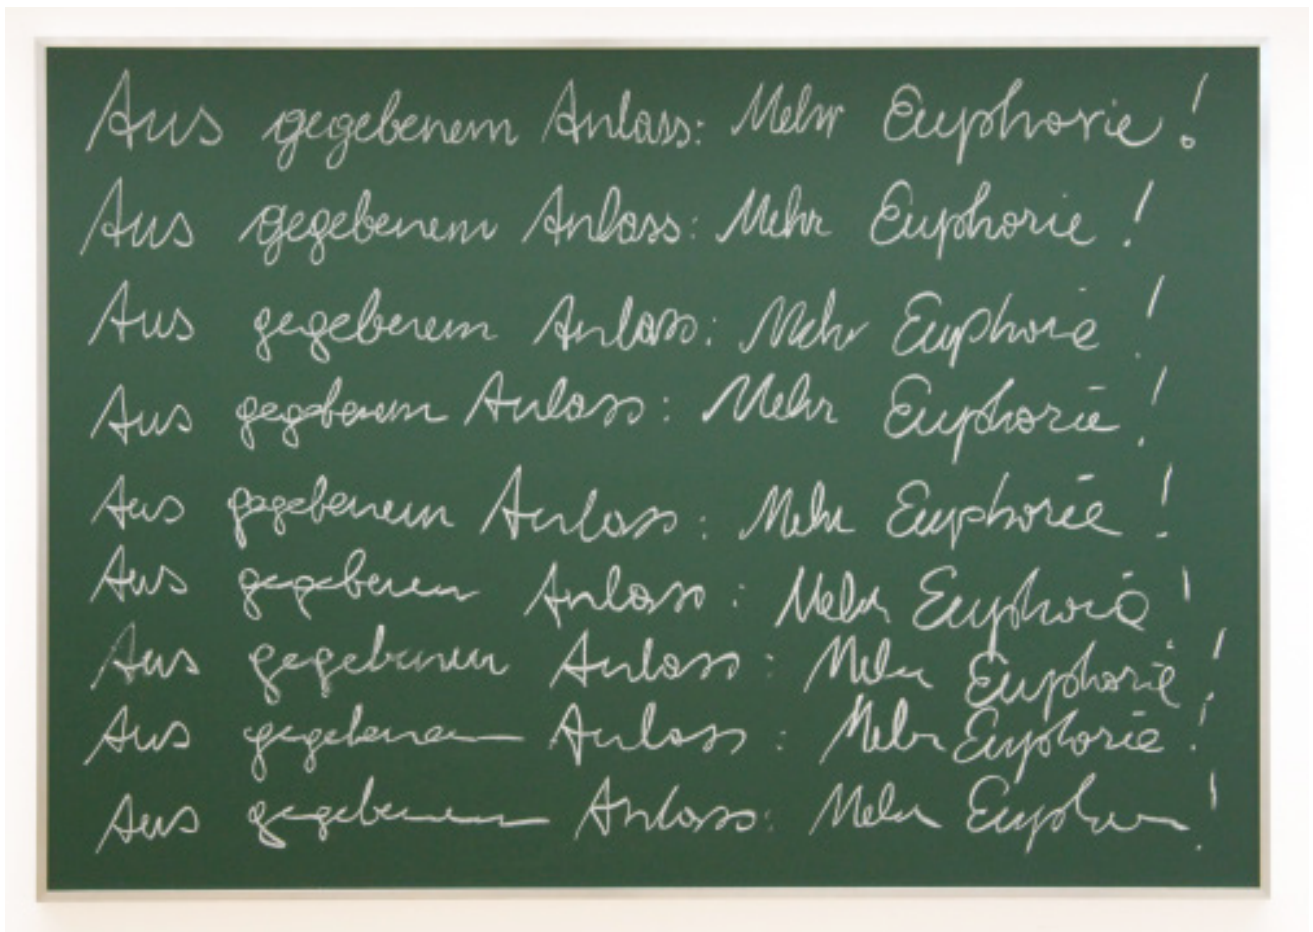 Aus gegebenem Anlass: Mehr Euphorie!
Aus gegebenem Anlass: Mehr Euphorie!
Aus gegebenem Anlass: Mehr Euphorie!
Aus gegebenem Anlass: Mehr Euphorie!
Aus gegebenem Anlass: Mehr Euphorie!
Aus gegebenem Anlass: Mehr Euphorie!
Aus gegebenem Anlass: Mehr Euphorie!
Aus gegebenem Anlass: Mehr Euphorie!
Aus gegebenem Anlass: Mehr Euphorie!